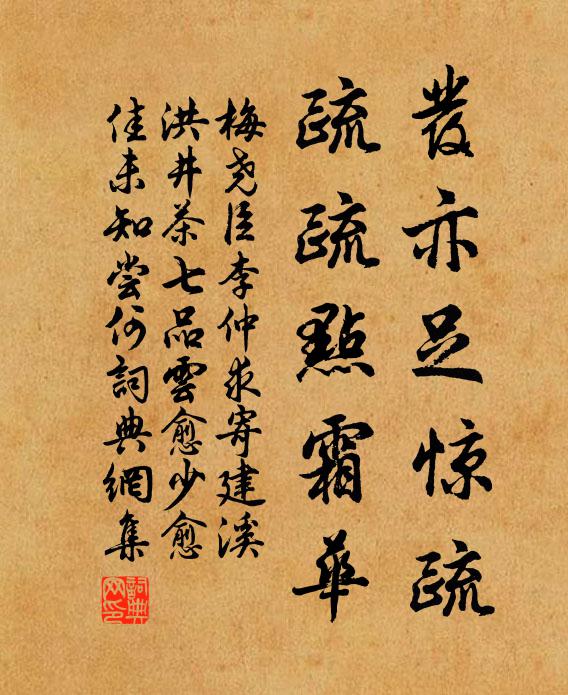 發亦足惊疏
疏疏點霜華
梅尧臣李仲求寄建溪
洪井茶七品雲愈少愈
佳未知尝何詞典網集